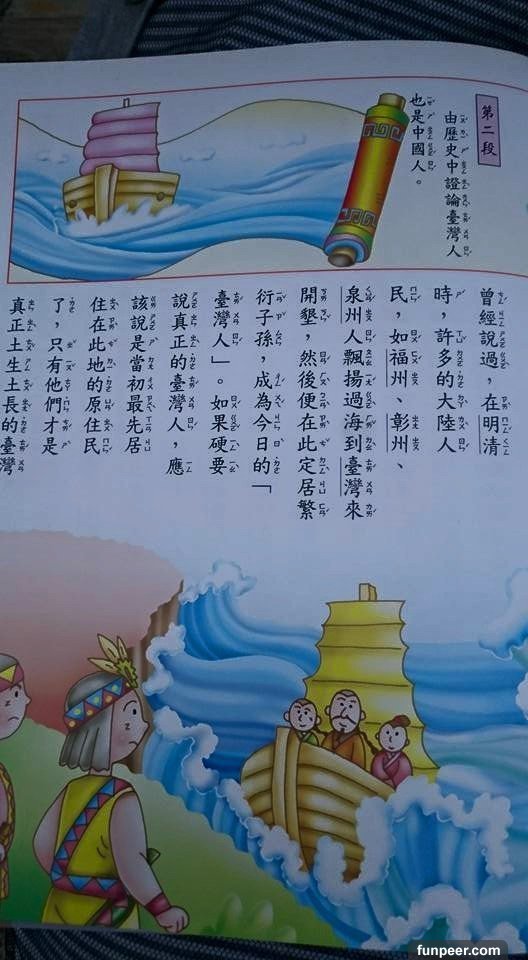 第二段
由歷史中證論臺灣人
也是中國人。
曾經說過，在明清
時，許多的大陸人
民，如福州、彰州、
泉州人飄揚過海到臺灣來
開墾，然後便在此定居繁
衍子孫，成為今日的「
臺灣人」。如果硬要
說真正的臺灣人，應
該說是當初最先居
住在此地的原住民
了，只有他們才是
真正土生土長的臺灣
funpeer.com